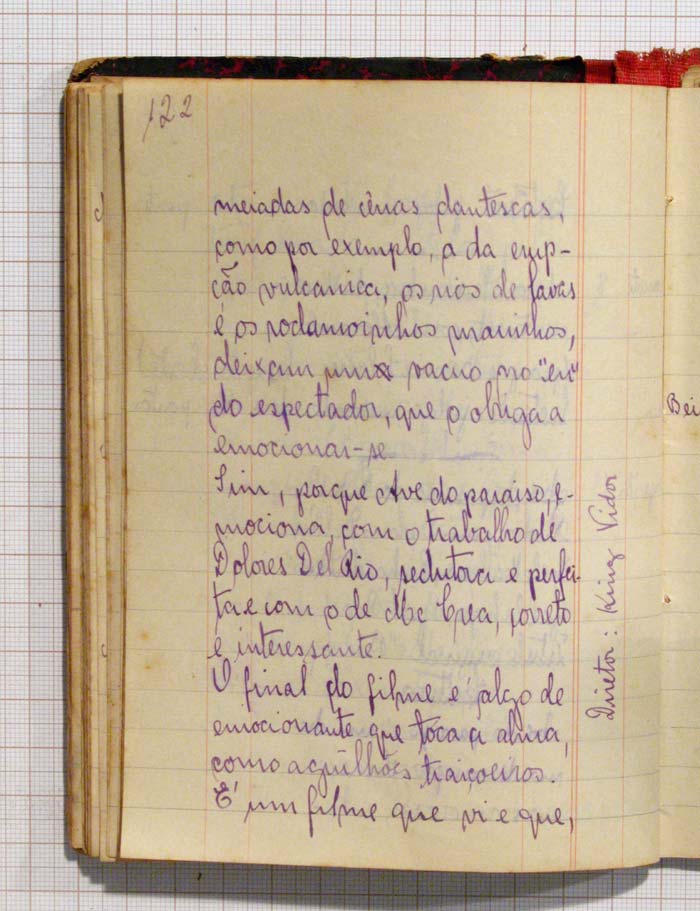 122
meiadas de cênas dantescas,
como por exemplo, a da erup-
ção vulcanica, os rios de lavas
e os rodamoinhos marinhos,
deixam um vacuo no "eu"
do espectador, que o obriga a
emocionar-se.
Sim, porque Ave do paraiso, e-
mociona, com o trabalho de
Dolores Del Rio, sedutora e perfei-
ta e com o de Mc Crea, correto
e interessante.
O final do filme é algo de
emocionante que tóca a alma,
como aguilhões traiçoeiros.
E' um filme que vi e que,
Diretor: King Vidor
Bei